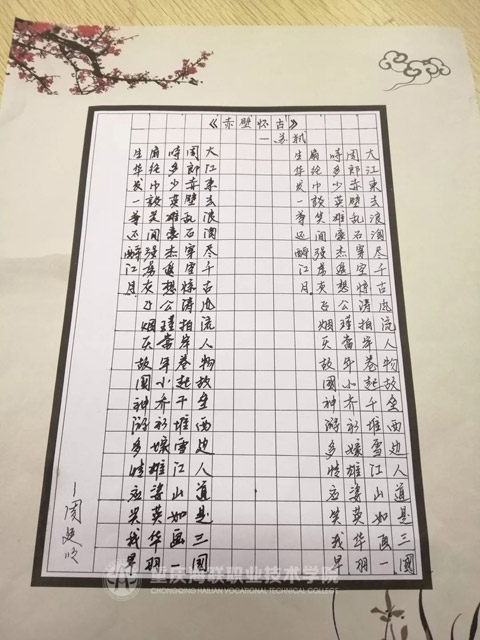 《赤壁怀古》
一苏轼
大江東去浪淘尽千古风流人物故垒西边人道是三國
周郎赤壁乱石穿空惊涛拍岸卷起千堆雪江山如画一
時多少英雄豪杰遥想公瑾當年小乔初嫁雄姿英华羽
扇纶巾談笑间强虏灰飞烟灭故國神游多情应笑我早
生华发一尊还酹江月
大江東去浪淘尽千古风流人物故垒西边人道是三國
周郎赤壁乱石穿空惊涛拍岸卷起千堆雪江山如画一
時多少英雄豪杰遥想公瑾當年小乔初嫁雄姿英华羽
扇纶巾談笑间强虏灰飞烟灭故國神游多情应笑我早
生华发一尊还酹江月
重庆海联职业技术学院
CHONGQING HAILIAN VOCATIONAL TECHNICAL COLLEGE